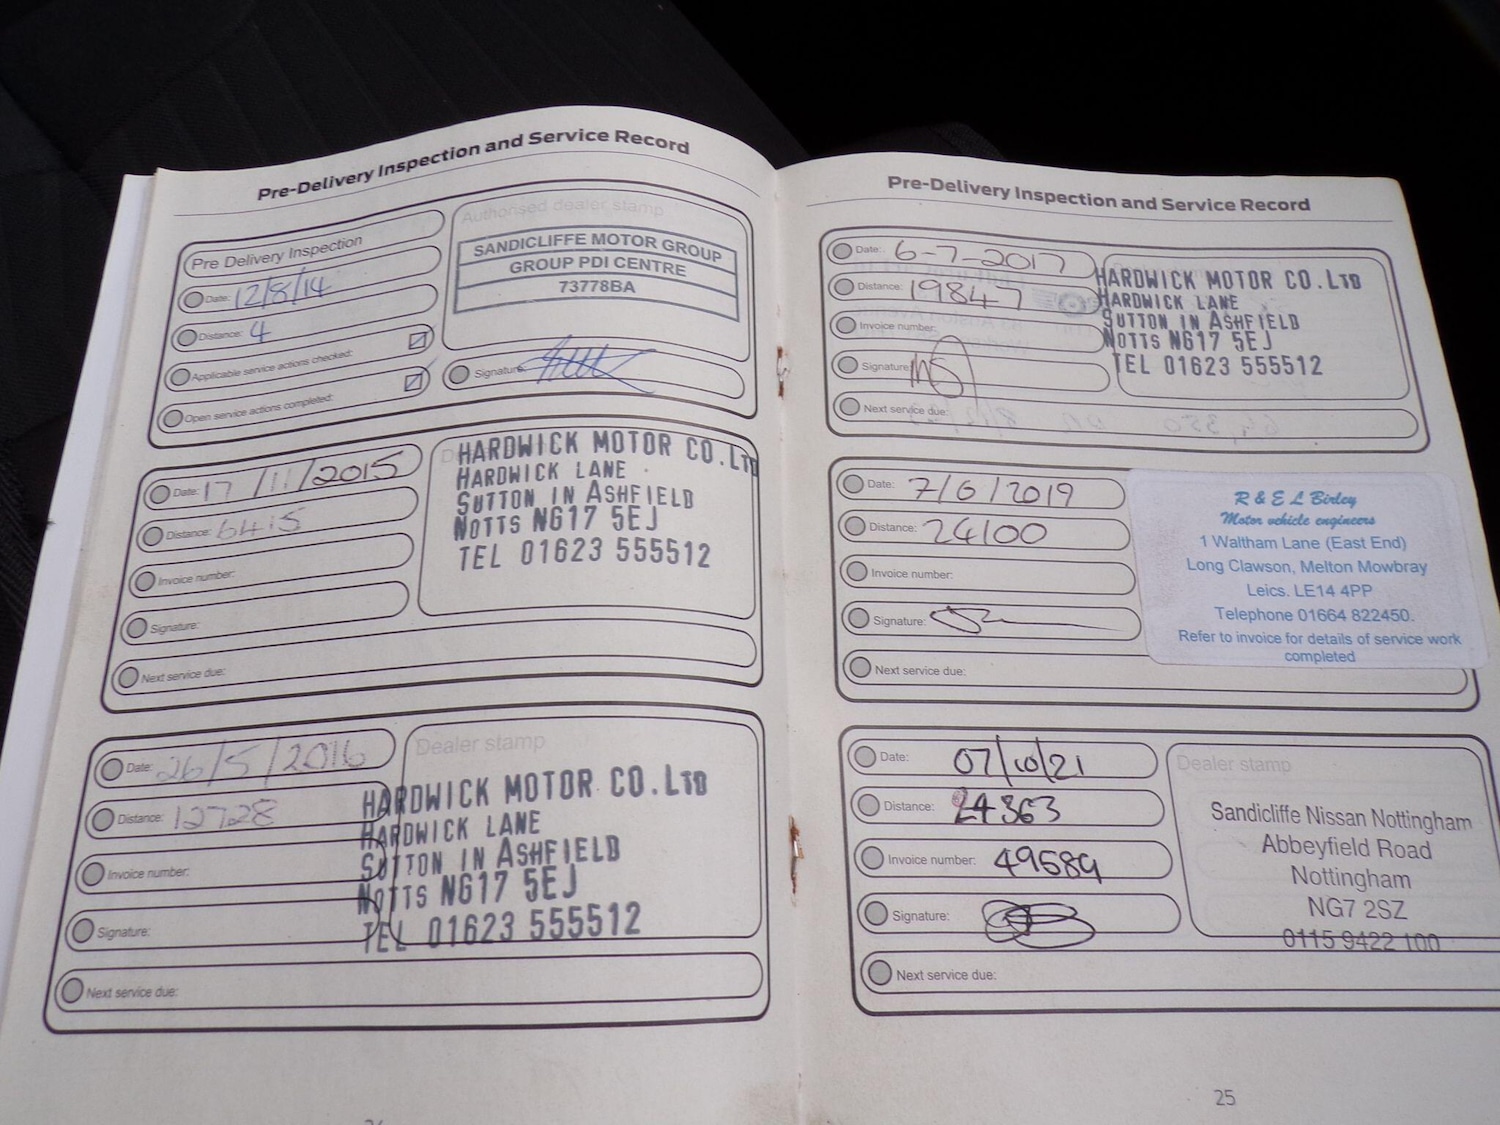 Pre-Delivery Inspection and Service Record
Pre Delivery Inspection
Date: 12/8/14
Distance: 4
Applicable service actions checked:
Open service actions completed:
Authorised dealer stamp
SANDICLIFFE MOTOR GROUP
GROUP PDI CENTRE
73778BA
Signature:
Date: 17/11/2015
Distance: 6415
Invoice number:
Signature:
Next service due:
HARDWICK MOTOR CO. LTD
HARDWICK LANE
SUTTON IN ASHFIELD
NOTTS NG17 5EJ
TEL 01623 555512
Date: 26/5/2016
Distance: 12728
Invoice number:
Signature:
Next service due:
Dealer stamp
HARDWICK MOTOR CO. LTD
HARDWICK LANE
SUTTON IN ASHFIELD
NOTTS NG17 5EJ
TEL 01623 555512
Pre-Delivery Inspection and Service Record
Date: 6-7-2017
Distance: 19847
Invoice number:
Signature:
Next service due:
HARDWICK MOTOR CO. LTD
HARDWICK LANE
SUTTON IN ASHFIELD
NOTTS NG17 5EJ
TEL 01623 555512
Date: 7/6/2019
Distance: 24100
Invoice number:
Signature:
Next service due:
R & E L Birley
Motor vehicle engineers
1 Waltham Lane (East End)
Long Clawson, Melton Mowbray
Leics. LE14 4PP
Telephone 01664 822450.
Refer to invoice for details of service work
completed
Date: 07/10/21
Distance: 24363
Invoice number: 49589
Signature:
Next service due:
Dealer stamp
Sandicliffe Nissan Nottingham
Abbeyfield Road
Nottingham
NG7 2SZ
0115 9422 100
25